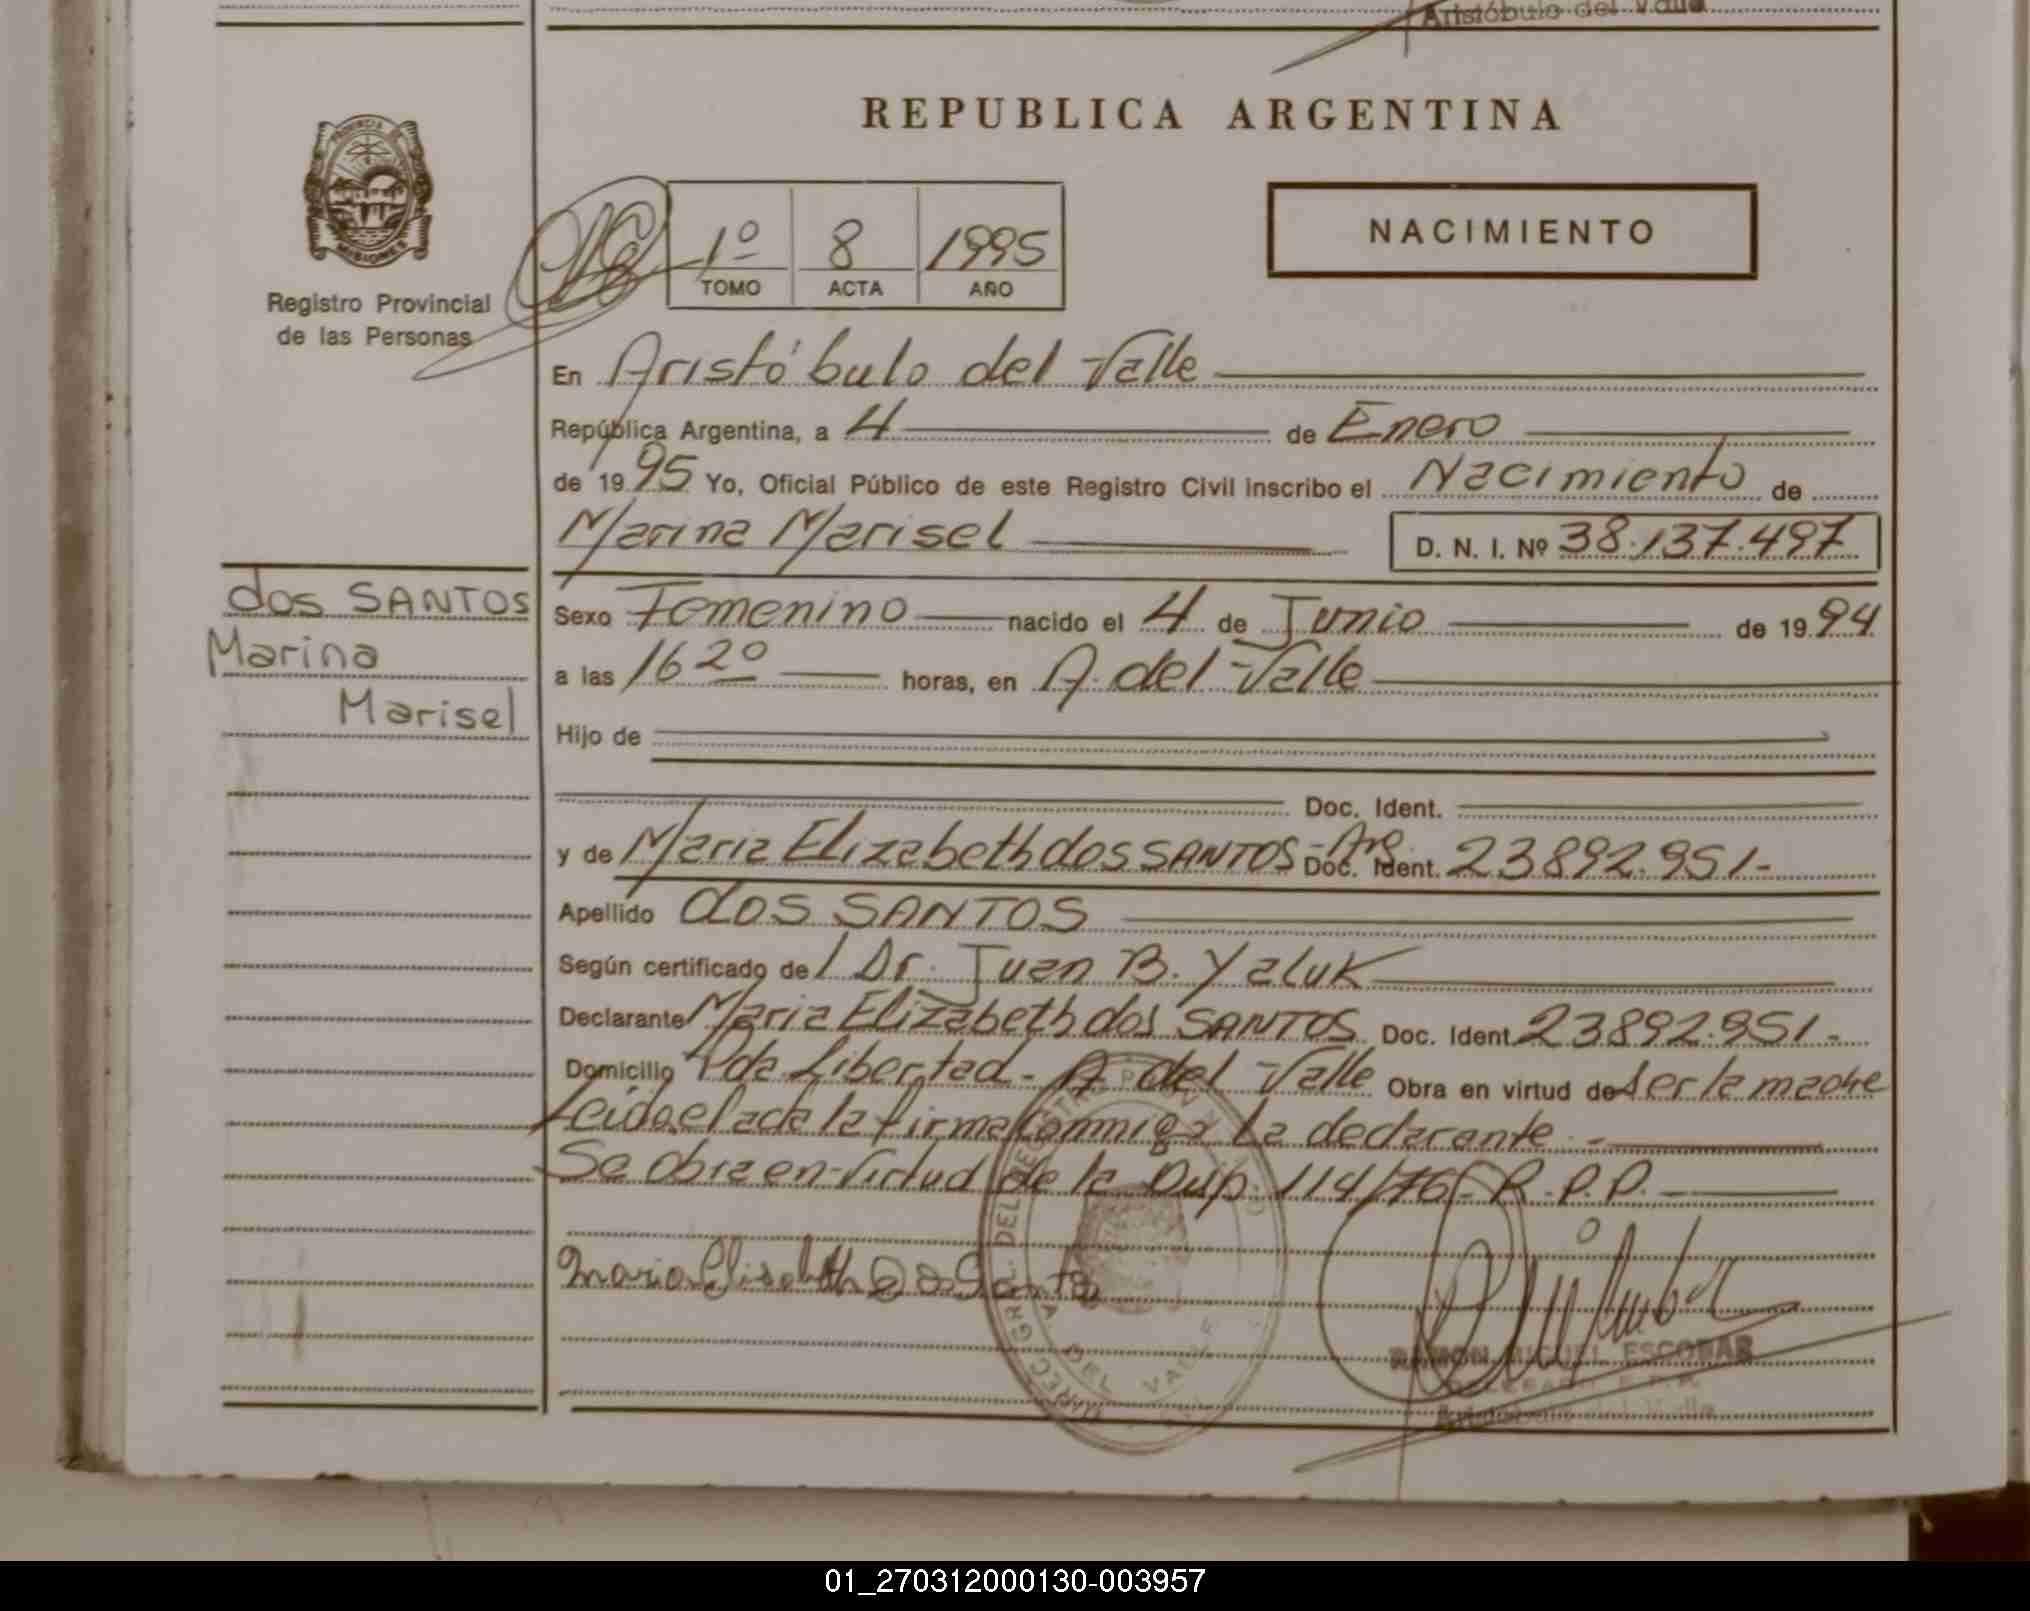 Aristóbulo del Valle
REPUBLICA ARGENTINA
PROVINCIA DE
MISIONES
Registro Provincial
de las Personas
NACIMIENTO
1º 8 1995
TOMO ACTA AÑO
En Aristóbulo del Valle
República Argentina, a 4 de Enero
de 1995 Yo, Oficial Público de este Registro Civil inscribo el Nacimiento de
Marina Marisel D. N. I. Nº 38.137.497
dos SANTOS
Marina
Marisel
Sexo Femenino nacido el 4 de Junio de 1994
a las 16 20 horas, en A. del Valle
Hijo de
Doc. Ident.
y de Maria Elizabeth dos SANTOS - Arg Doc. Ident. 23892.951-
Apellido dos SANTOS
Según certificado de Dr. Juan B. Yaluk
Declarante Maria Elizabeth dos SANTOS Doc. Ident. 23892.951-
Domicilio Pda Libertad - A del Valle Obra en virtud de ser la madre
Leido el acta la firma conmigo la declarante.-
Se obra en virtud de la Disp. 114/76 - R.P.P.-
Maria Elisabeth Dos Santos
DEL REGISTRO
A DEL VALLE
RAMON MIGUEL ESCOBAR
DELEGADO R.P.P.
Aristóbulo del Valle
01_270312000130-003957